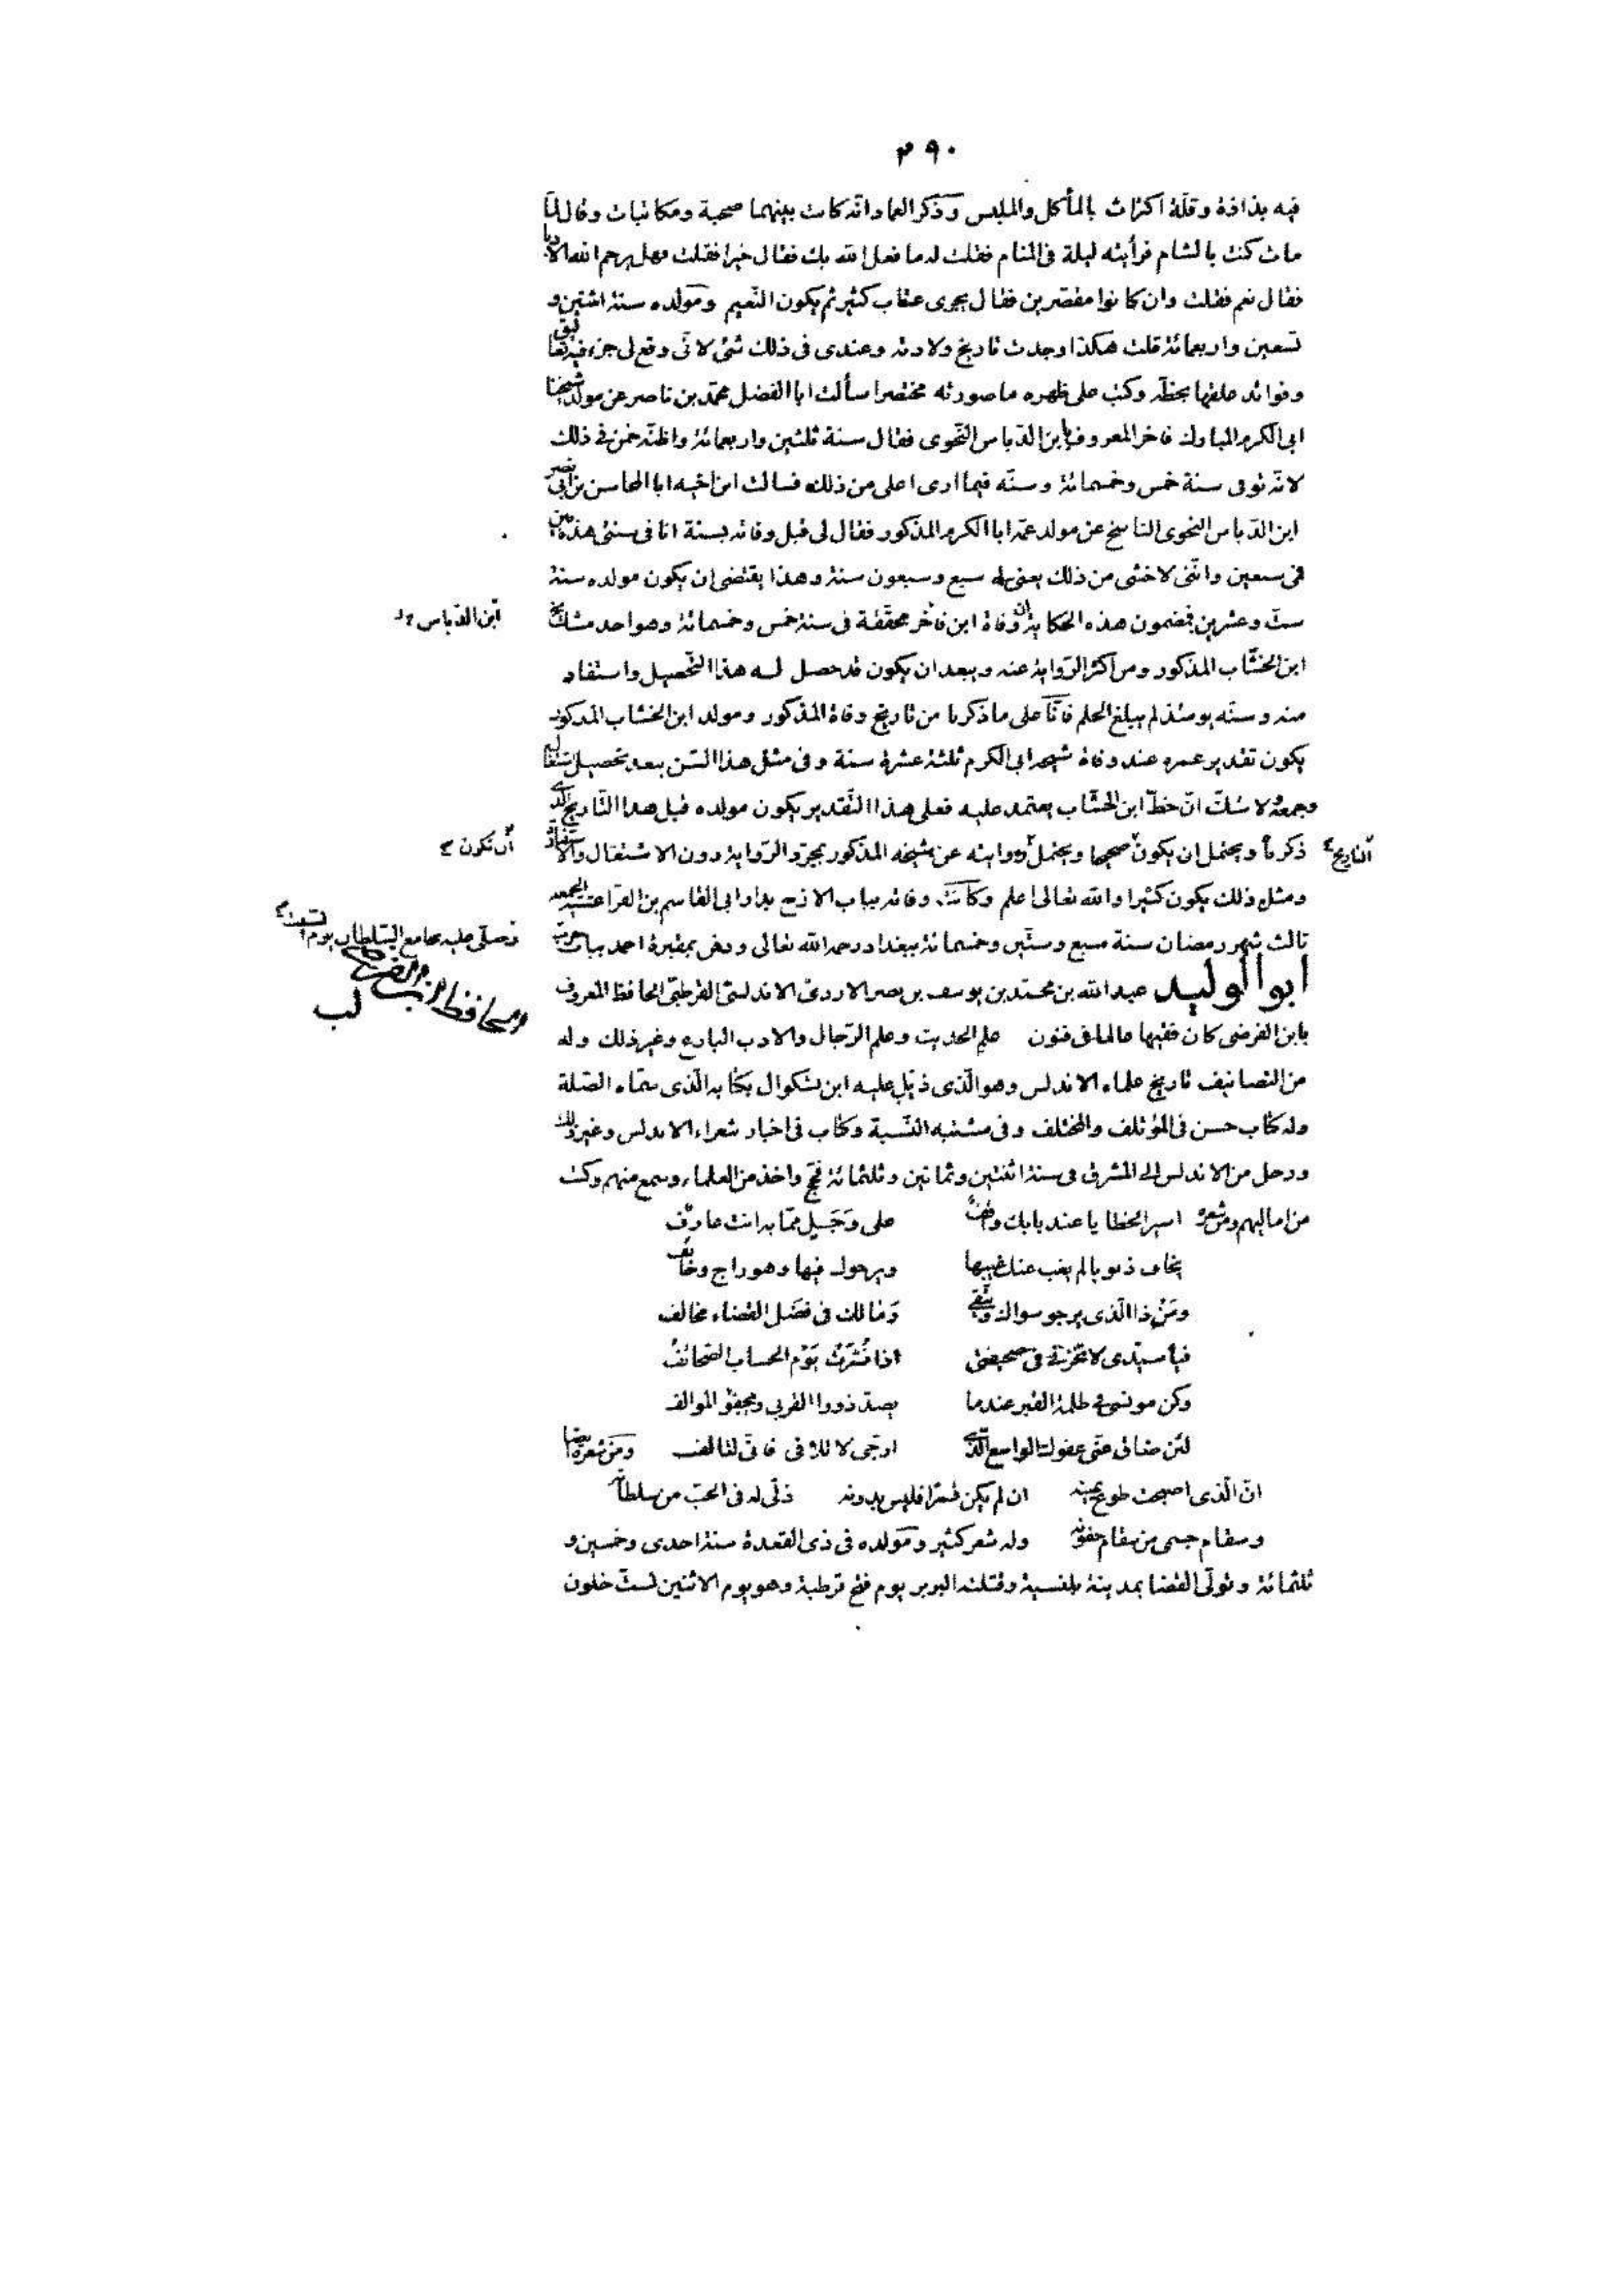 ٢٩٠
فيه بذاذة وقلة اكتراث بالمأكل والملبس وذكر العماد انه كانت بينهما صحبة ومكاتبات وقال لما
مات كنت بالشام فرأيته ليلة فى المنام فقلت له ما فعل الله بك فقال خيرا فقلت فهل يرحم الله الادبا
فقال نعم فقلت وان كانوا مقصرين فقال يجرى عتاب كثير ثم يكون النعيم ومولده سنة اثنتين و
تسعين واربعمائة قلت هكذا وجدت تاريخ ولادته وعندى فى ذلك شئ لانى وقع لى جزء فيه تعاليق
وفوائد علقها بخطه وكتب على ظهره ما صورته مختصرا سألت ابا الفضل محمد بن ناصر عن مولد شيخنا
ابى الكرم المبارك فاخر المعروف بابن الدباس النحوى فقال سنة ثلثين واربعمائة واظنه خمن فى ذلك
لانه توفى سنة خمس وخمسمائة وسنه فيما ارى اعلى من ذلك فسالت ابن اخيه ابا المحاسن بن ابى نصر
ابن الدباس النحوى الناسخ عن مولد عمه ابا الكرم المذكور فقال لى قبل وفاته بسنة انا فى سنتى هذه
فى سبعين واننى لاخشى من ذلك يعنى له سبع وسبعون سنة وهذا يقتضى ان يكون مولده سنة
ست وعشرين فمضمون هذه الحكاية ان وفاة ابن فاخر محققة فى سنة خمس وخمسمائة وهو احد مشايخ
ابن الدباس
ابن الخشاب المذكور ومن اكثر الرواية عنه ويبعد ان يكون قد حصل له هذا التحصيل واستفاد
منه وسنه يومئذ لم يبلغ الحلم فانا على ما ذكرنا من تاريخ وفاة المذكور ومولد ابن الخشاب المذكور
يكون تقدير عمره عند وفاة شيخه ابى الكرم ثلثة عشرة سنة وفى مثل هذا السن يبعد تحصيل
وجمعه لا شك ان خط ابن الخشاب يعتمد عليه فعلى هذا التقدير يكون مولده قبل هذا التاريخ الذى
ذكرنا ويحتمل ان يكون صحيحا ويحتمل روايته عن شيخه المذكور بمجرد الرواية دون الاشتغال والاستفادة
التاريخ
أن تكون
ومثل ذلك يكون كثيرا والله تعالى اعلم وكانت وفاته بباب الازج بدار ابى القاسم بن الفرا عشية الجمعه
ثالث شهر رمضان سنة سبع وستين وخمسمائة ببغداد رحمه الله تعالى ودفن بمقبرة احمد بباب حرب
وصلى عليه بجامع السلطان يوم السبت
ابو الوليد عبد الله بن محمد بن يوسف بن نصر الازدى الاندلسى القرطبى الحافظ المعروف
الحافظ ابن الفرضى
بابن الفرضى كان فقيها عالما فى فنون علم الحديث وعلم الرجال والادب البارع وغير ذلك وله
من التصانيف تاريخ علماء الاندلس وهو الذى ذيل عليه ابن بشكوال بكتابه الذى سماه الصلة
وله كتاب حسن فى المؤتلف والمختلف وفى مشتبه النسبة وكتاب فى اخبار شعراء الاندلس وغير ذلك
ورحل من الاندلس الى المشرق فى سنة اثنتين وثمانين وثلثمائة فحج واخذ من العلماء وسمع منهم وكتب
من اماليهم ومن شعره اسير الخطايا عند بابك واقف على وجل مما به انت عارف
يخاف ذنوبا لم يغب عنك غيبها ويرجوك فيها وهو راج وخائف
ومن ذا الذى يرجو سواك ويتقى وما لك فى فصل القضاء مخالف
فيا سيدى لا تخزنى فى صحيفتى اذا نشرت يوم الحساب الصحائف
وكن مونسى فى ظلمة القبر عندما يصد ذووا القربى ويجفو الموالف
لئن ضاق عنى عفوك الواسع الذى ارجى لاسرافى فانى لتالف ومن شعره ايضا
ان الذى اصبحت طوع يمينه ان لم يكن قمرا فليس بدونه ذلى له فى الحب من سلطانه
وسقام جسمى من سقام جفونه وله شعر كثير ومولده فى ذى القعدة سنة احدى وخمسين و
ثلثمائة وتولى القضا بمدينة بلنسية وقتلته البربر يوم فتح قرطبة وهو يوم الاثنين لست خلون